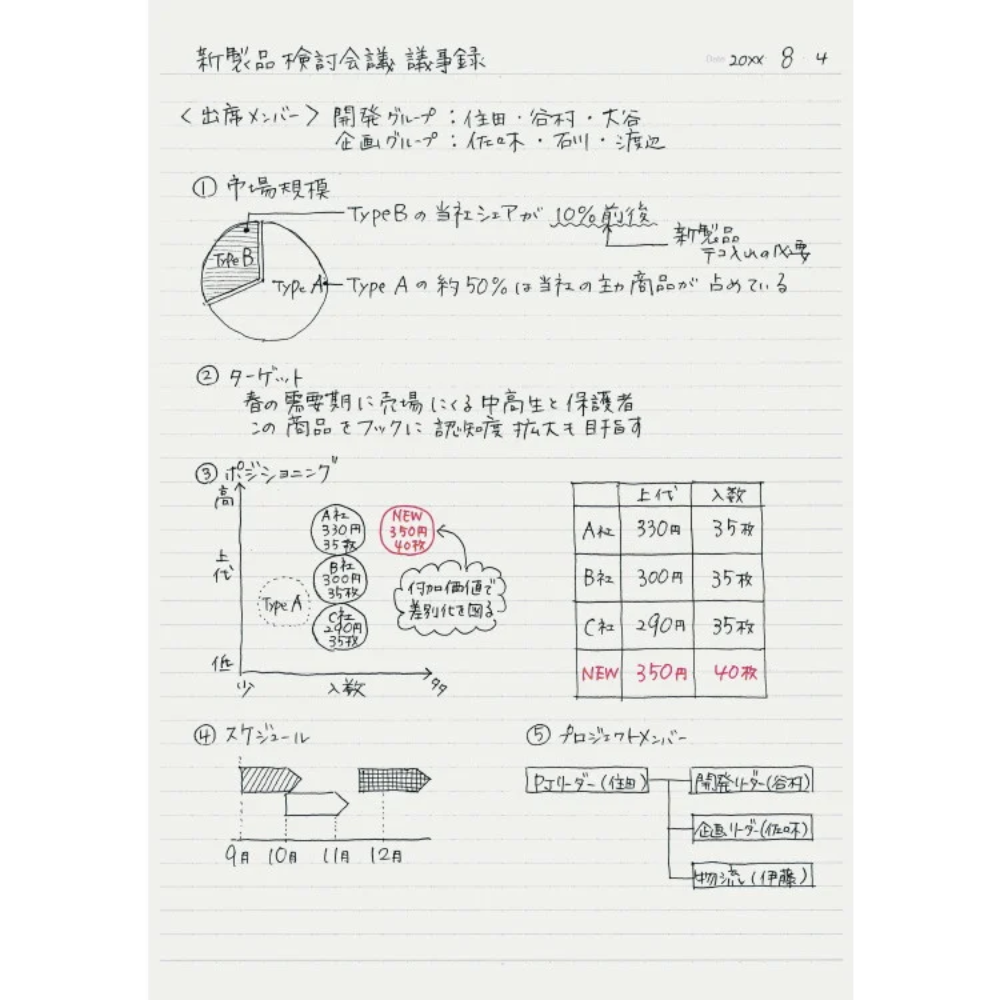 新製品検討会議 議事録
Date 20XX 8・4
〈出席メンバー〉 開発グループ：住田・谷村・大谷
企画グループ：佐々木・石川・渡辺
① 市場規模
TypeBの当社シェアが 10%前後
新製品
テコ入れの必要
Type B
Type A
Type Aの約50%は当社の主力商品が占めている
② ターゲット
春の需要期に売場にくる中高生と保護者
この商品をフックに認知度拡大も目指す
③ ポジショニング
高
上代
低
少
入数
多
Type A
A社
330円
35枚
B社
300円
35枚
C社
290円
35枚
NEW
350円
40枚
付加価値で
差別化を図る
上代 入数
A社 330円 35枚
B社 300円 35枚
C社 290円 35枚
NEW 350円 40枚
④ スケジュール
9月 10月 11月 12月
⑤ プロジェクトメンバー
PJリーダー(住田)
開発リーダー(谷村)
企画リーダー(佐々木)
物流(伊藤)